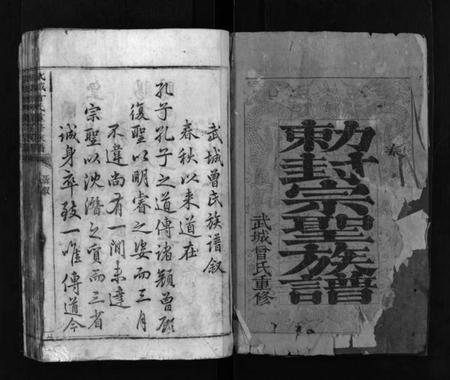 勅封宗聖族譜
武城曾氏重修
武城曾氏族譜叙
春秋以来道在
孔子孔子之道傳諸顏曾顧
復聖以明睿之姿而三月
不違尚有一間未達
宗聖以沈潛之質而三省
誠身卒致一唯傳道今